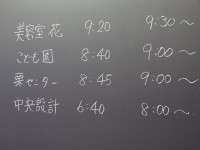 美容室 花 9:20 9:30～
こども園 8:40 9:00～
栗センター 8:45 9:00～
中央設計 6:40 8:00～